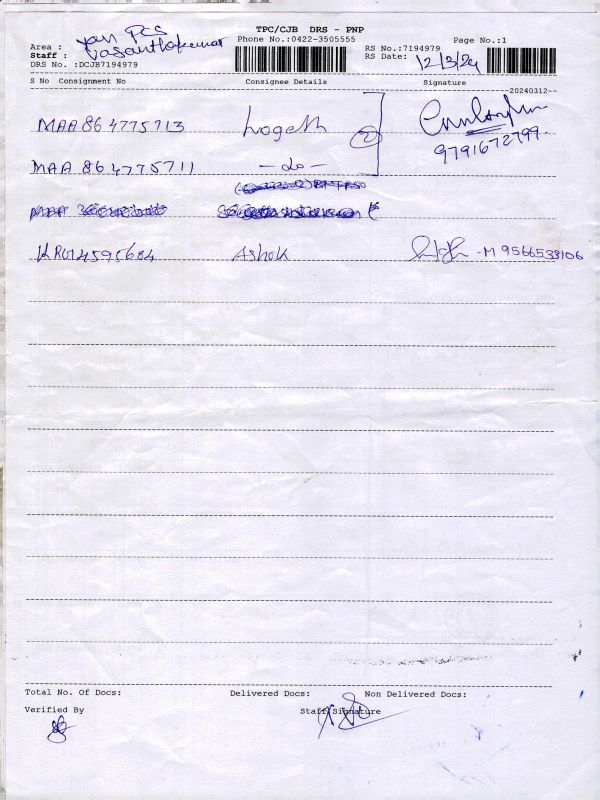 TPC/CJB DRS - PNP
Phone No.:0422-3505555 Page No.:1
Area :
Staff : Vasanthakumar
DRS No. :DCJB7194979
RS No.:7194979
RS Date: 12/3/24
S No Consignment No Consignee Details Signature
--20240312--
MAA 864775713 Logesh 2
9791672799
MAA 864775711 - do -
KRU14595684 Ashok - M 9566533106
Total No. Of Docs: Delivered Docs: Non Delivered Docs:
Verified By Staff Signature